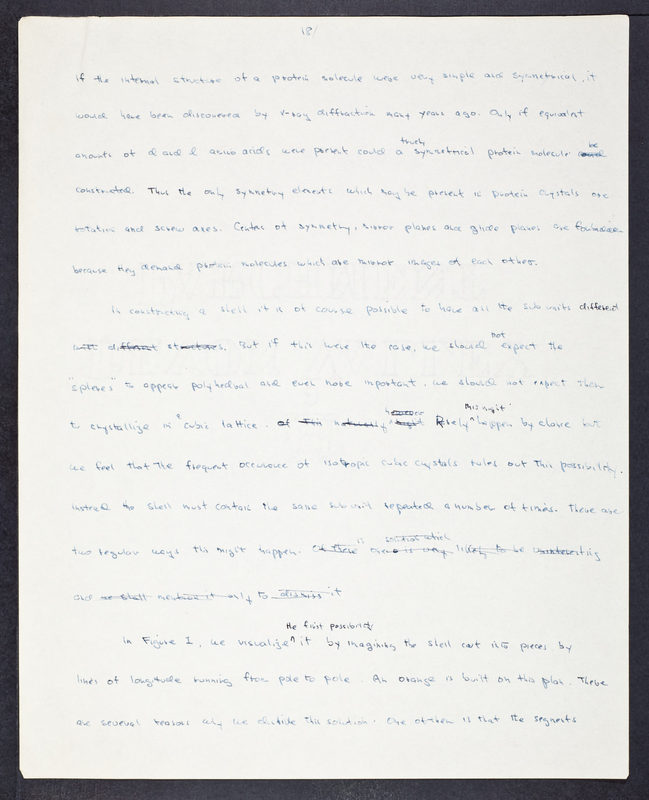 18/
If the internal structure of a protein molecule were very simple and symmetrical, it
would have been discovered by x-ray diffraction many years ago. Only if equivalent
amounts of d and l amino acids were present could a truly symmetrical protein molecule be
constructed. Thus the only symmetry elements which may be present in protein crystals are
rotation and screw axes. Centers of symmetry, mirror planes and glide planes are forbidden
because they demand protein molecules which are mirror images of each other.
In constructing a shell it is of course possible to have all the sub units different
with different structures. But if this were the case, we should not expect the
"spheres" to appear polyhedral and even more important, we should not expect them
to crystallize in a cubic lattice. Of naturally however might Rarely this might happen by chance but
we feel that the frequent occurence of isotropic cubic crystals rules out this possibility.
Instead the shell must contain the same sub unit repeated a number of times. There are
two regular ways this might happen. Of these one is very likely to be uninteresting
and we shall mention it only to dismiss it
In Figure I, we visualize the first possibility it by imagining the shell cut into pieces by
lines of longitude running from pole to pole. An orange is built on this plan. There
are several reasons why we dislike this solution. One of them is that the segments